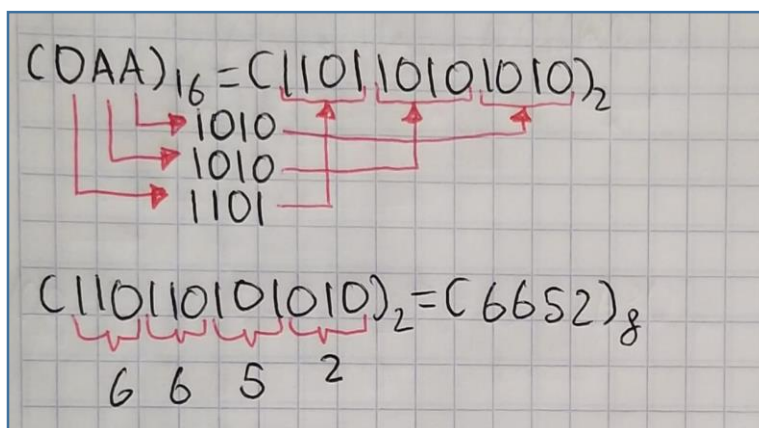 (DAA)16=(110110101010)2
1010
1010
1101
(110110101010)2=(6652)8
6 6 5 2